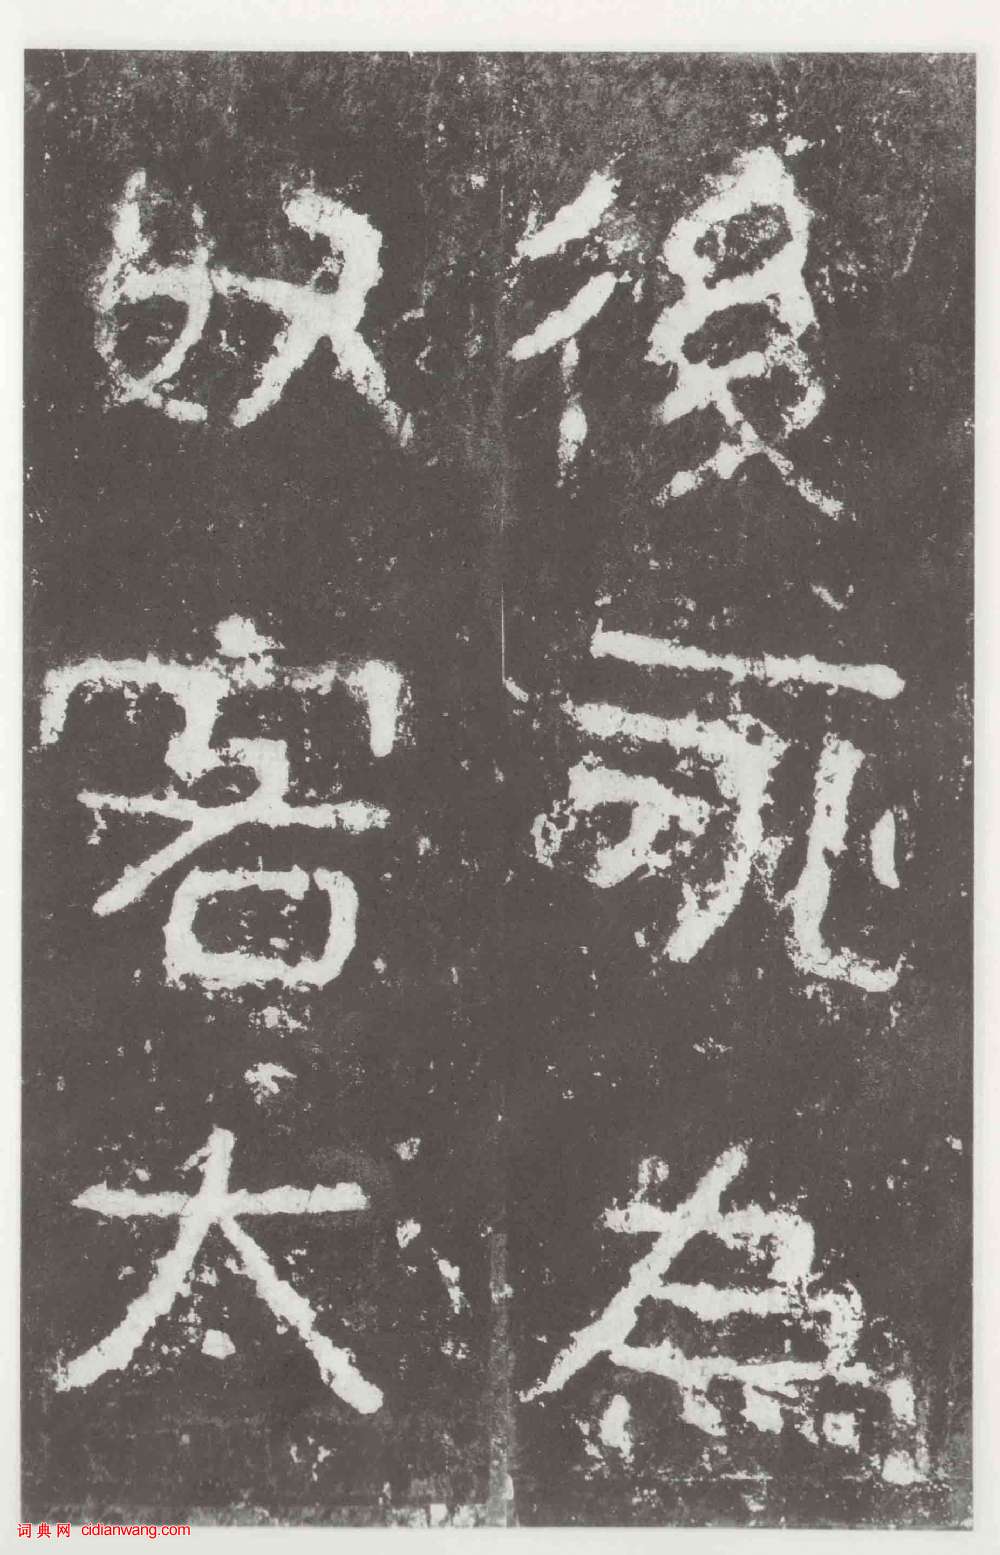 後永為
奴客太
词典网 cidianwang.com